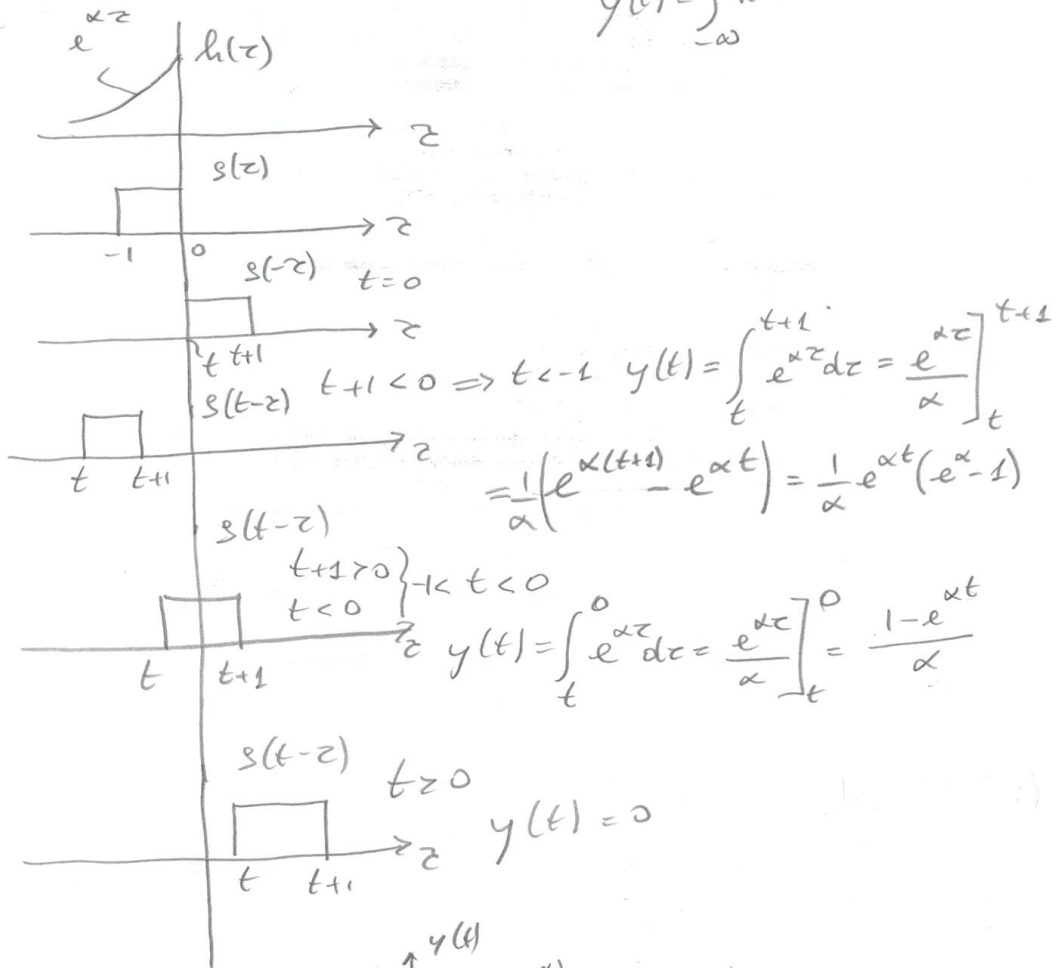 y(t) = ∫_{-∞}
e^{ατ}
h(τ)
τ
s(τ)
τ
-1 0
s(-τ) t=0
τ
t t+1
s(t-τ) t+1<0 => t<-1 y(t) = ∫_t^{t+1} e^{ατ}dτ = e^{ατ}/α ]_t^{t+1}
τ
t t+1
= 1/α (e^{α(t+1)} - e^{αt}) = 1/α e^{αt}(e^α - 1)
s(t-τ)
t+1>0
t<0 } -1< t <0
τ
t t+1
y(t) = ∫_t^0 e^{ατ}dτ = e^{ατ}/α ]_t^0 = 1-e^{αt}/α
s(t-τ)
t≥0
τ
y(t) = 0
t t+1
y(t)